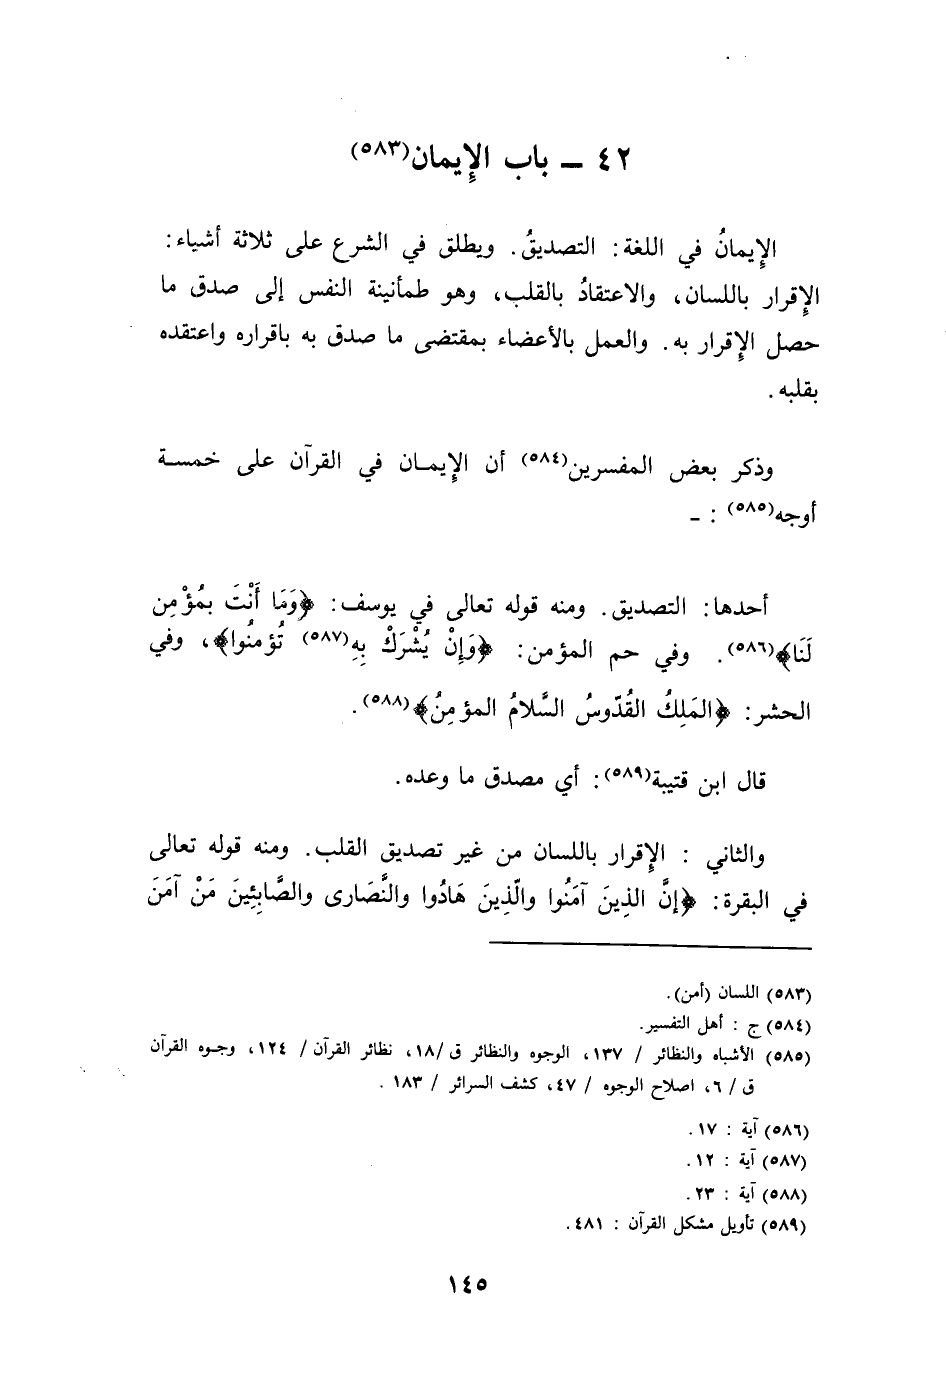 ٤٢ ــ باب الإِيمان(٥٨٣)
الإِيمانُ في اللغة: التصديقُ. ويطلق في الشرع على ثلاثة أشياء:
الإِقرار باللسان، والاعتقادُ بالقلب، وهو طمأنينة النفس إلى صدق ما
حصل الإِقرار به. والعمل بالأعضاء بمقتضى ما صدق به باقراره واعتقده
بقلبه.
وذكر بعض المفسرين(٥٨٤) أن الإِيمـان في القرآن على خمسـة
أوجه(٥٨٥) : ـ
أحدها: التصديق. ومنه قوله تعالى في يوسف: ﴿وَمَا أَنْتَ بِمُؤْمِنٍ
لَنَا﴾(٥٨٦). وفي حم المؤمن: ﴿وَإِنْ يُشْرَكْ بِهِ(٥٨٧) تُؤمنُوا﴾، وفي
الحشر: ﴿المَلِكُ القُدّوسُ السَّلامُ المؤمِنُ﴾(٥٨٨).
قال ابن قتيبة(٥٨٩): أي مصدق ما وعده.
والثاني : الإِقرار باللسان من غير تصديق القلب. ومنه قوله تعالى
في البقرة: ﴿إنَّ الذِينَ آمَنُوا والّذِينَ هَادُوا والنَّصَارى والصَّابِئِينَ مَنْ آمَنَ
(٥٨٣) اللسان (أمن).
(٥٨٤) ج : أهل التفسير.
(٥٨٥) الأشباه والنظائر / ١٣٧، الوجوه والنظائر ق /١٨، نظائر القرآن / ١٢٤، وجـوه القرآن
ق / ٦، اصلاح الوجوه / ٤٧، كشف السرائر / ١٨٣ .
(٥٨٦) آية : ١٧.
(٥٨٧) آية : ١٢.
(٥٨٨) آية : ٢٣.
(٥٨٩) تأويل مشكل القرآن : ٤٨١.
١٤٥